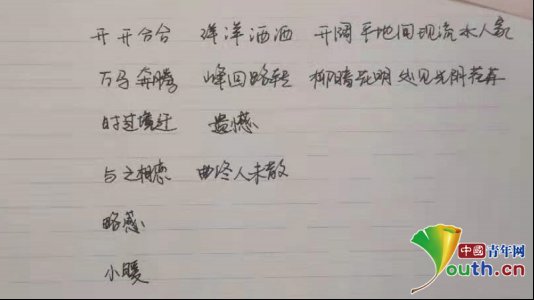 开开合合 洋洋洒洒 开阔平地间现流水人家
万马奔腾 峰回路转 柳暗花明处见光阴荏苒
时过境迁 遗憾
与之相恋 曲终人未散
略感
小暖
中國青年网
Youth.cn